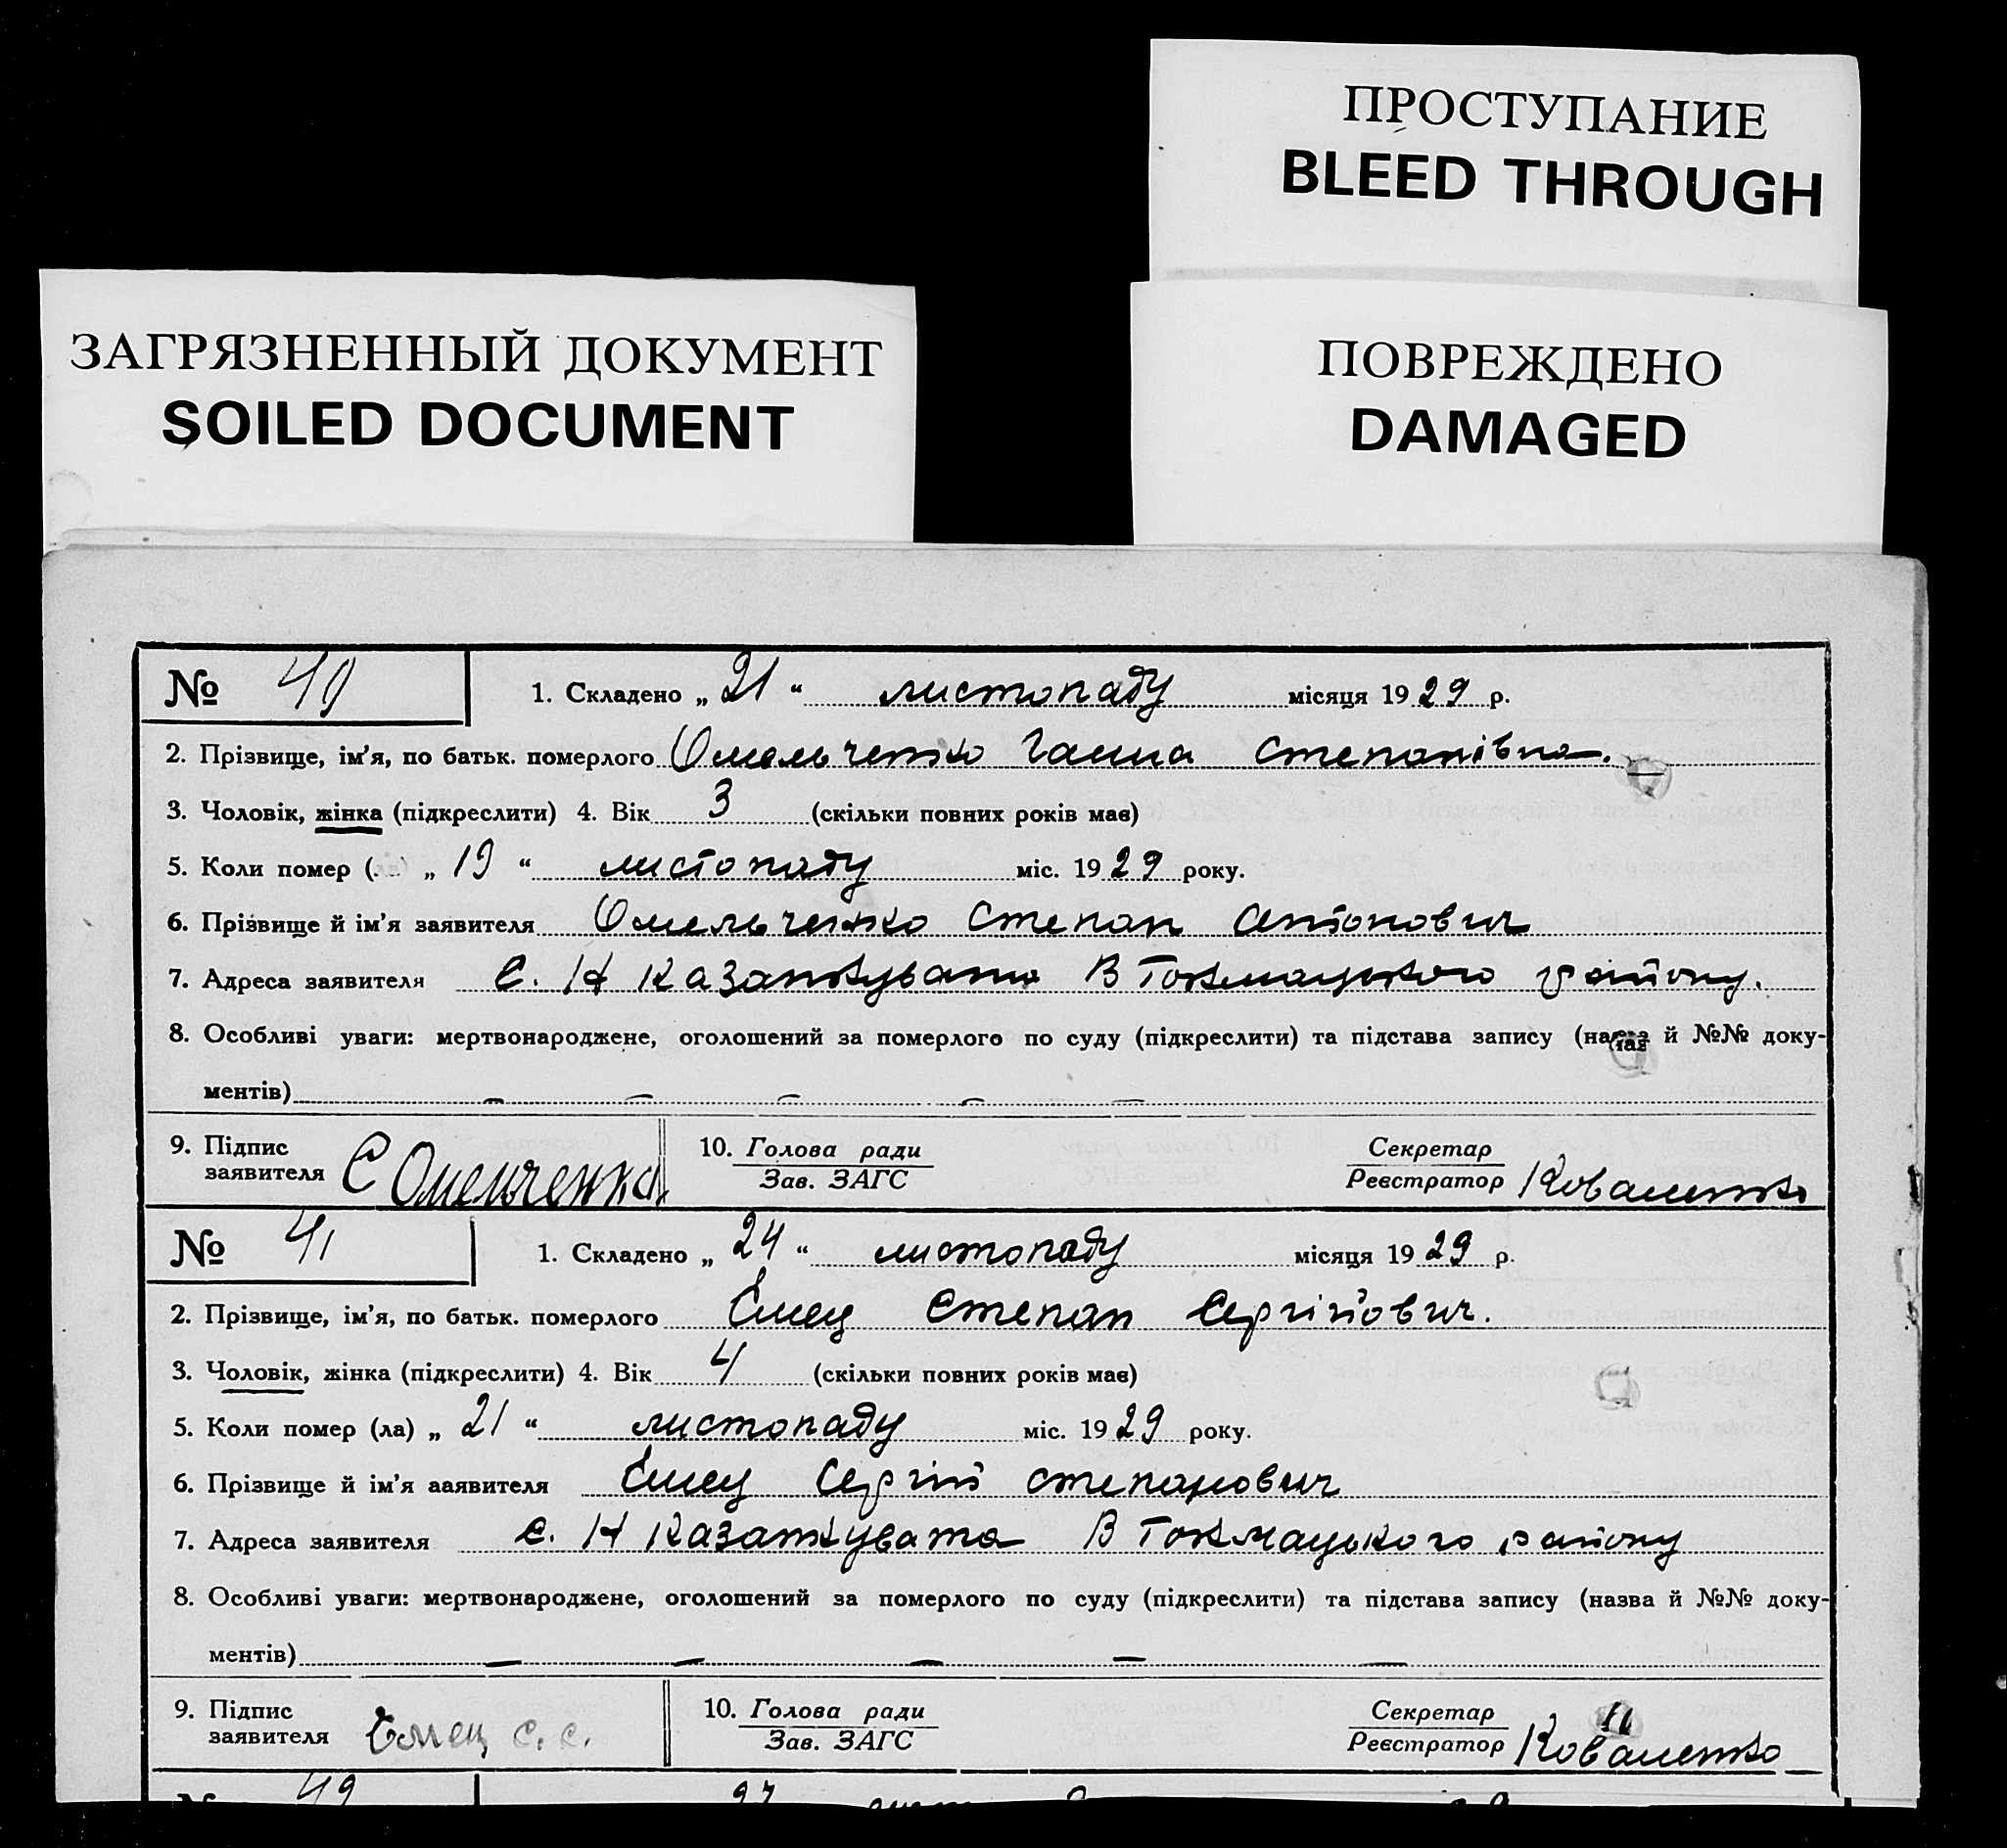 ПРОСТУПАНИЕ
BLEED THROUGH
ЗАГРЯЗНЕННЫЙ ДОКУМЕНТ
SOILED DOCUMENT
ПОВРЕЖДЕНО
DAMAGED
№ 40 1. Складено „ 21 “ листопаду місяця 1929 р.
2. Прізвище, ім'я, по батьк. померлого Омельченко Ганна Степанівна.
3. Чоловік, жінка (підкреслити) 4. Вік 3 (скільки повних років має)
5. Коли помер ( ) „ 19 “ листопаду міс. 1929 року.
6. Прізвище й ім'я заявителя Омельченко Степан Антонович
7. Адреса заявителя с. Н Казанкувата В Токмацького району.
8. Особливі уваги: мертвонароджене, оголошений за померлого по суду (підкреслити) та підстава запису (назва й №№ доку-
ментів) – – – – –
9. Підпис заявителя С Омельченко 10. Голова ради Секретар
Зав. ЗАГС Реєстратор Коваленко
№ 41 1. Складено „ 24 “ листопаду місяця 1929 р.
2. Прізвище, ім'я, по батьк. померлого Ємец Степан Сергійович.
3. Чоловік, жінка (підкреслити) 4. Вік 4 (скільки повних років має)
5. Коли помер (ла) „ 21 “ листопаду міс. 1929 року.
6. Прізвище й ім'я заявителя Ємец Сергій Степанович
7. Адреса заявителя с. Н Казанкувата В Токмацького району
8. Особливі уваги: мертвонароджене, оголошений за померлого по суду (підкреслити) та підстава запису (назва й №№ доку-
ментів) – – – – –
9. Підпис заявителя Ємец С. С. 10. Голова ради Секретар
Зав. ЗАГС Реєстратор Коваленко